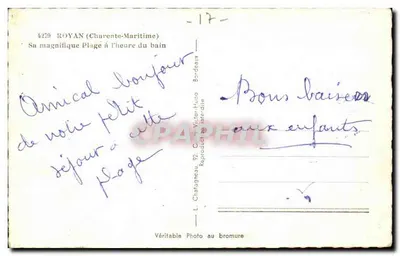 - 17 -
4270 ROYAN (Charente-Maritime)
Sa magnifique Plage à l'heure du bain
Amical bonjour
de notre petit
séjour à cette
plage
Bons baisers
aux enfants
CPAPHIL
L. Chatagneau, Bordeaux
Reproduction interdite
Véritable Photo au bromure